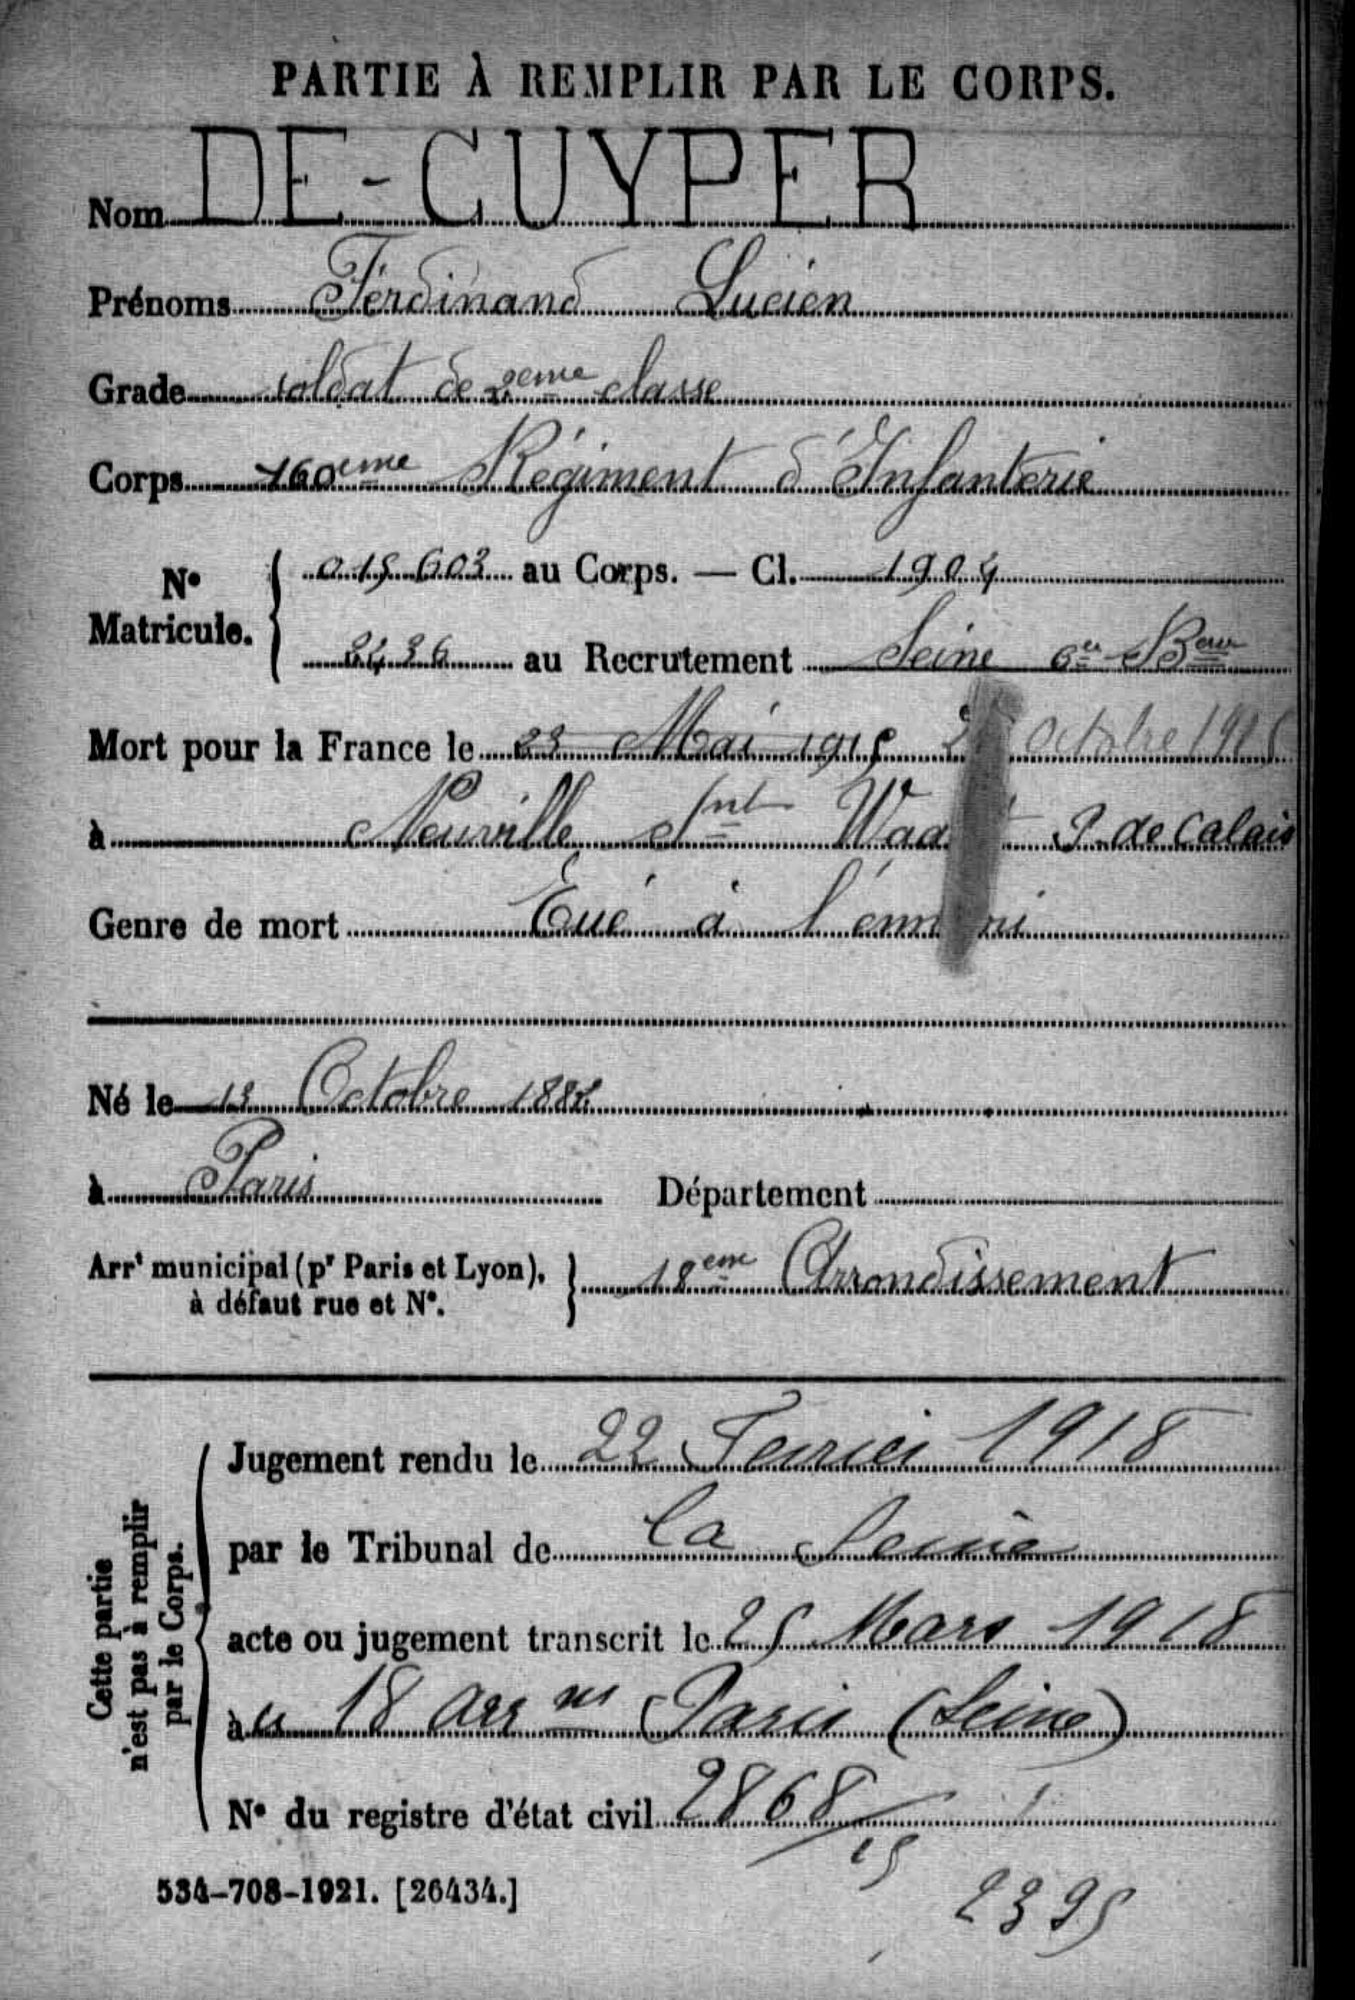 PARTIE À REMPLIR PAR LE CORPS.
Nom DE-CUYPER
Prénoms Ferdinand Lucien
Grade soldat de 2eme classe
Corps 160eme Régiment d'Infanterie
N° Matricule. 015603 au Corps. — Cl. 1904
2436 au Recrutement Seine 6e Beau
Mort pour la France le 23 Mai 1915 octobre 1915
à Neuville Snt P. de Calais
Genre de mort Tué à l'énnemi
Né le 13 Octobre 1882
à Paris Département
Arrt municipal (pr Paris et Lyon), à défaut rue et N°. 18eme Arrondissement
Cette partie n'est pas à remplir par le Corps.
Jugement rendu le 22 Fevrier 1918
par le Tribunal de la Seine
acte ou jugement transcrit le 25 Mars 1918
à 18 arr Paris (Seine)
N° du registre d'état civil 2868
15
2395
534-708-1921. [26434.]